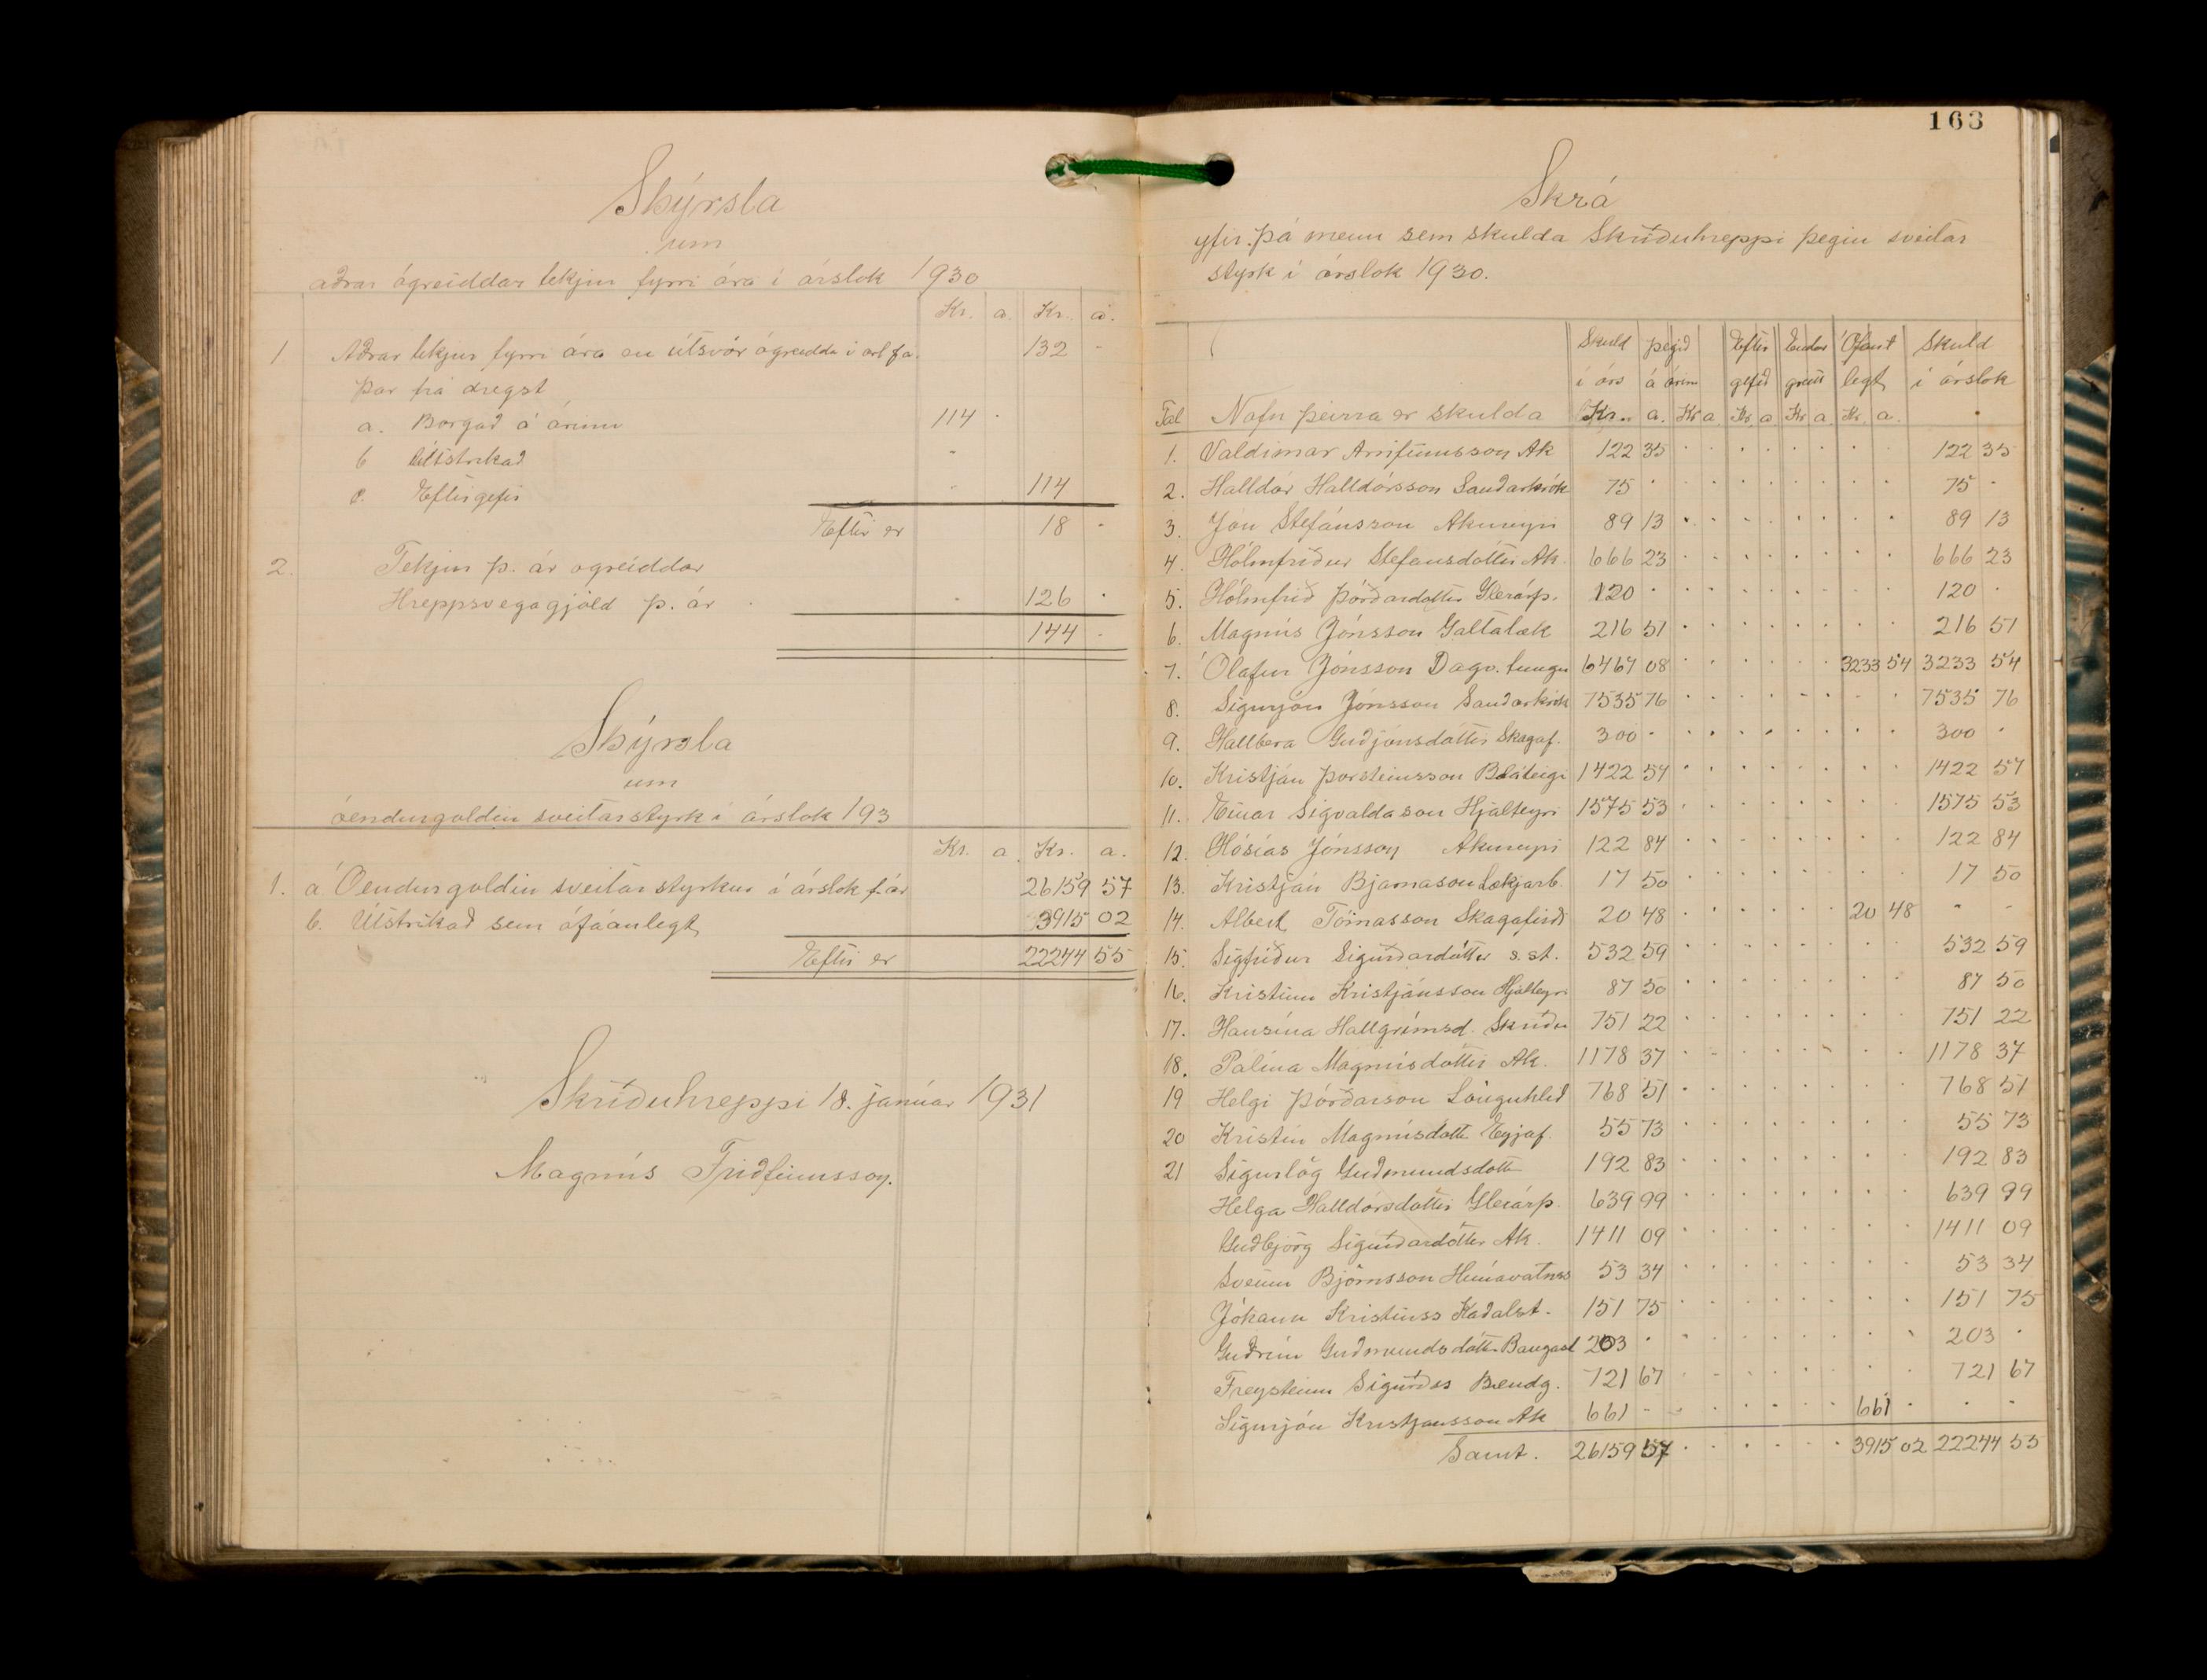 Skýrsla
um
aðrar ógreiddar tekjur fyrri ára í árslok 1930
Kr. a. Kr. a.
1. Aðrar tekjur fyrri ára en útsvör ógreidda í arl f a. 132 -
Þar frá dregst
a. Borgað á árinu 114 ·
b Útstrikað -
c. Eftirgefin - 114
Eftir er 18 -
2. Tekjur þ. ár ogreiddar
Hreppsvegagjöld þ. ár - 126 ·
144 -
Skýrsla
um
óendurgoldin sveitarstyrk í árslok 193
Kr. a. Kr. a.
1. a Óendurgoldin sveitarstyrkur í árslok f. ár 26159 57
b. Útstrikað sem ófáanlegt 3915 02
Eftir er 22244 55
Skriðuhreppi 18. janúar 1931
Magnús Friðfinnsson.
163
Skrá
yfir þá menn sem skulda Skriðuhreppi þegin sveitar
styrk í árslok 1930.
Skuld þegið Eftir Endur Ófáant Skuld
í árs á árinu gefið greitt legt í árslok
Tal Nafn þeirra er skulda Kr. a. Kr a. Kr. a Kr a. Kr. a.
1. Valdimar Arnfinnsson Ak 122 35 122 35
2. Halldór Halldórsson Saudarkrók 75 · 75 ·
3. Jón Stefánsson Akureyri 89 13 89 13
4. Hólmfríður Stefansdóttir Ak. 666 23 666 23
5. Hólmfrið Þórðardottir Glerárþ. 120 · 120 ·
6. Magnús Jónsson Galtalæk 216 51 216 51
7. Ólafur Jónsson Dagv. tungu 6467 08 3233 54 3233 54
8. Sigurjón Jónsson Saudarkrók 7535 76 7535 76
9. Hallbera Guðjónsdóttir Skagaf. 300 · 300 ·
10. Kristján Þorsteinsson Bláteigi 1422 54 1422 54
11. Einar Sigvaldason Hjalteyri 1575 53 1575 53
12. Hósías Jónsson Akureyri 122 84 122 84
13. Kristján Bjarnason Lækjarb. 17 50 17 50
14. Albert Tómasson Skagafirði 20 48 20 48 - -
15. Sigfríður Sigurðardóttir s. st. 532 59 532 59
16. Kristinn Kristjánsson Hjalteyri 87 50 87 50
17. Hansína Hallgrímsd. Skriðu 751 22 751 22
18. Palína Magnúsdóttir Ak. 1178 37 1178 37
19 Helgi Þórðarson Lönguhlíð 768 51 768 51
20 Kristín Magnúsdott Eyjaf. 55 73 55 73
21 Sigurlög Guðmundsdott 192 83 192 83
Helga Halldórsdóttir Glerárþ. 639 99 639 99
Guðbjörg Sigurðardóttir Ak. 1411 09 1411 09
Sveinn Björnsson Húnavatnss 53 34 53 34
Jóhann Kristinss Kaðalst. 151 75 151 75
Guðrún Guðmundsdótt 203 · 203 ·
Freysteinn Sigurðss Bændg. 721 67 721 67
Sigurjón Kristjansson Ak 661 - 661 · · ·
Samt. 26159 57 3915 02 22244 55